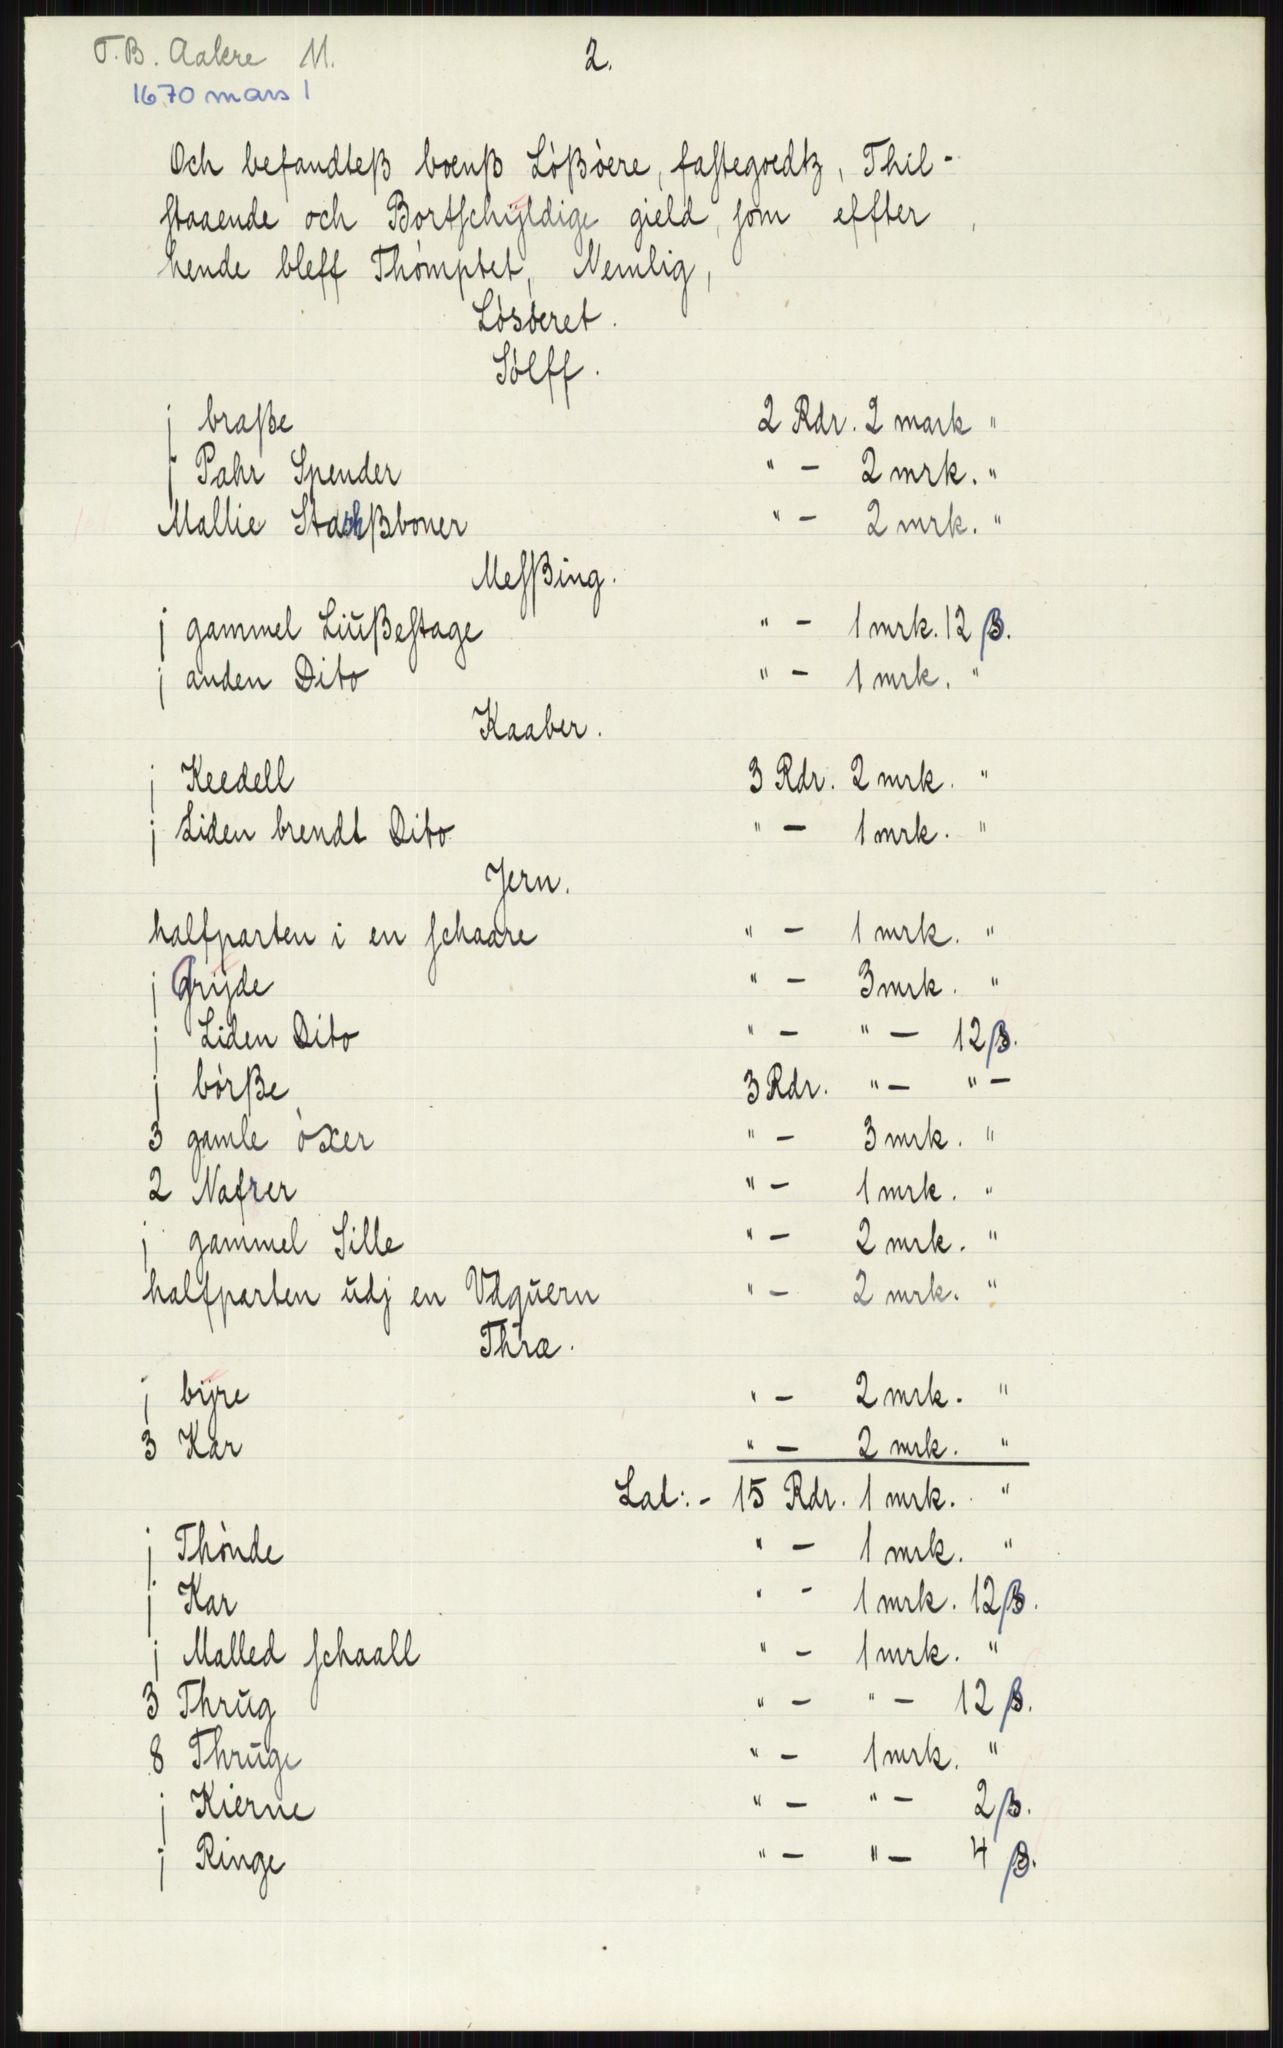 T.B. Aakre 11. 2.
1670 mars 1
Och befandteß boenß Lòßòere, fastegoedtz, Thil-
staaende och Bortschÿldige gield, som effter
hende bleff Thòmptet, Nemlig,
Lòsòeret.
Sòlff.
j braße 2 Rdr. 2 mark "
j Pahr Spender " - 2 mrk. "
Mallie Stackßboner " - 2 mrk. "
Messßing.
j gammel Liŭßestage " - 1 mrk. 12 β.
j anden Dito " - 1 mrk. "
Kaaber.
j Keedell 3 Rdr. 2 mrk. "
j Liden brendt Dito " - 1 mrk. "
Jern.
halfparten i en schaare " - 1 mrk. "
j Grÿde " - 3 mrk. "
j Liden Dito " - " - 12 β.
j bòrße 3 Rdr. " - " -
3 gamle òxer " - 3 mrk. "
2 Nafrer " - 1 mrk. "
j gammel Sille " - 2 mrk. "
halfparten ŭdj en Vdqŭern " - 2 mrk. "
Thræ.
j bÿre " - 2 mrk. "
3 Kar " - 2 mrk. "
Lat: - 15 Rdr. 1 mrk. "
j Thònde " - 1 mrk. "
j Kar " - 1 mrk. 12 β.
j Malled schaall " - 1 mrk. "
3 Thrŭg " - " - 12 β.
8 Thrŭge " - 1 mrk. "
j Kierne " - " - 2 β.
j Ringe " - " - 4 β.